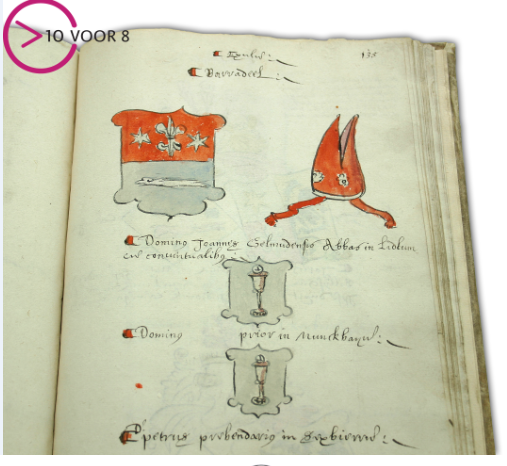 10 VOOR 8
133
Barradeel:
Domino Joannes Gelmudensis Abbas in Lidlum
cum conventualibus:
Dominus prior in Munckbayu:
petrus prebendarius in Sexbierum: